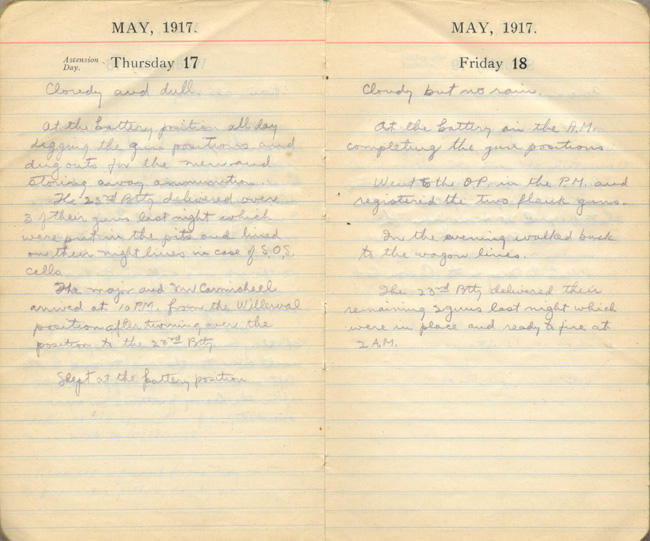 MAY, 1917.
Ascension Day. Thursday 17
Cloudy and dull.
At the battery position all day
digging the gun positions and
dug outs for the men and
storing away ammunition.
The 23rd Btty delivered over
3 of their guns last night which
were put in the pits and lined
on their night lines in case of S.O.S.
calls.
The major and Mr Carmichael
arrived at 10 P.M. from the Willerval
position after turning over the
position to the 23rd Btty.
Slept at the battery position
MAY, 1917.
Friday 18
Cloudy but no rain.
At the battery in the A.M.
completing the gun positions.
Went to the O.P. in the P.M. and
registered the two flank guns.
In the evening walked back
to the wagon lines.
The 23rd Btty delivered their
remaining 2 guns last night which
were in place and ready to fire at
2 A.M.